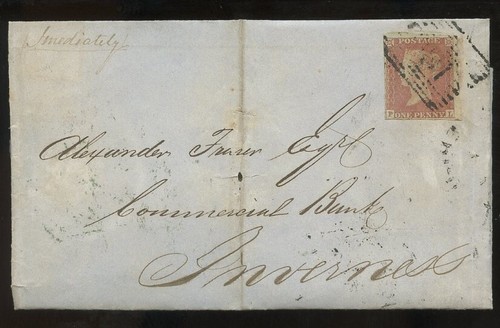 Imediately
POSTAGE
ONE PENNY
Alexander Fraser Esqre
Commercial Bank
Inverness